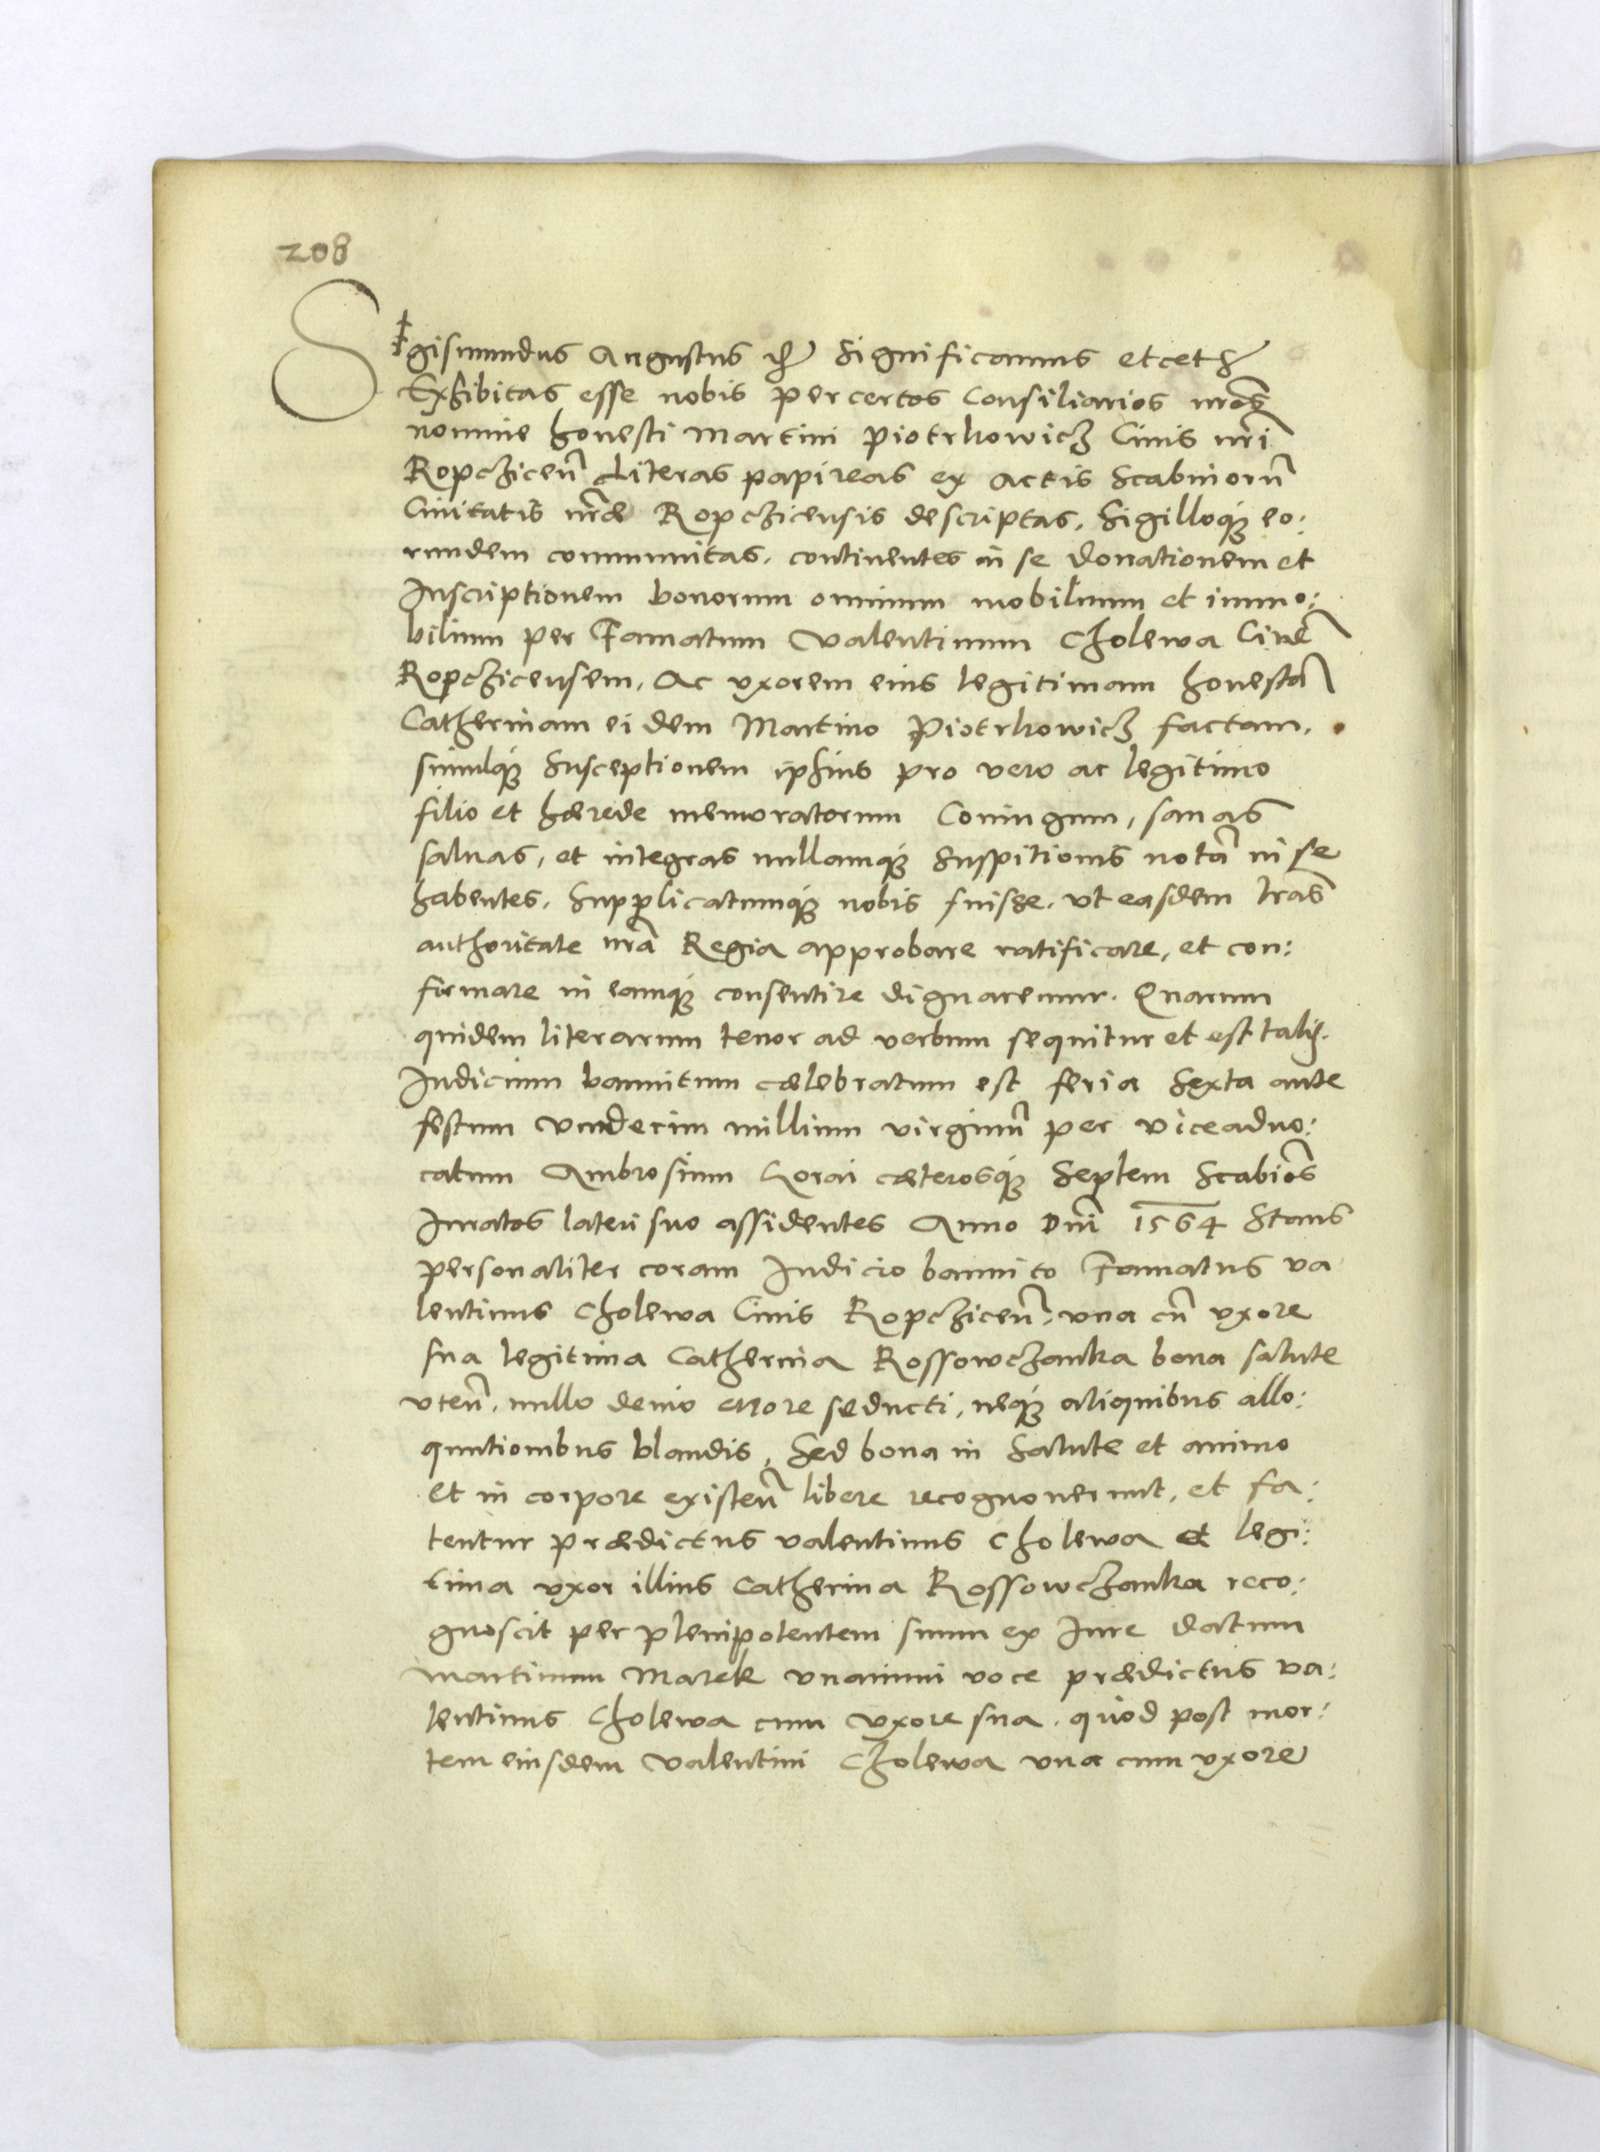 208
SIgismundus Augustus etc Significamus etceterꝫ
Exhibitas esse nobis per certos Consiliarios nrõs
nomine honesti Martini Piotrkowicz Ciuis nrĩ
Ropczicen̄ Literas papireas ex Actis Scabinorū
Ciuitatis nrãe Ropczicensis descriptas, Sigilloq́ꝫ eo:
rundem communitas, continentes in se donationem et
Inscriptionem bonorum omnium mobilium et immo:
bilium per Famatum Valentinum Cholewa Ciuē
Ropczicensem, Ac vxorem eius legitimam honestā
Catherinam eidem Martino Piotrkowicz factam,
simulq́ꝫ Susceptionem ipsius pro vero ac legitimo
filio et hærede memoratorum Coniugum, sanas
saluas, et integras nullamq́ꝫ Suspitionis notā in se
habentes, Supplicatumq́ꝫ nobis fuisse, vt easdem lrãs
authoritate nrã Regia approbare ratificare, et con:
firmare in eamq́ꝫ consentire dignaremur. Quarum
quidem literarum tenor ad verbum sequitur et est talis.
Iudicium bannitum cælebratum est feria Sexta ante
festum Vndecim millium virginū per viceaduo:
catum Ambrosium Korai cæterosq́ꝫ Septem Scabiōs
Iuratos lateri suo assidentes Anno Dnĩ 1564 Stans
personaliter coram Iudicio bannito Famatus Va
lentinus Cholewa Ciuis Ropczicen̄, vna cū vxore
sua legitima Catherina Rossowczanka bona salute
vten̄, nullo deuio errore seducti, neq́ꝫ aliquibus allo:
quutionibus blandis, Sed bona in Salute et animo
et in corpore existen̄ libere recognouerunt, et fa:
tentur prædictus Valentinus Cholewa et legi:
tima vxor illius Catherina Rossowczanka reco:
gnoscit per plenipotentem suum ex Iure datum
Martinum Marek vnanimi voce prædictus Va:
lentinus Cholewa cum vxore sua, quod post mor:
tem eiusdem Valentini Cholewa vna cum vxore